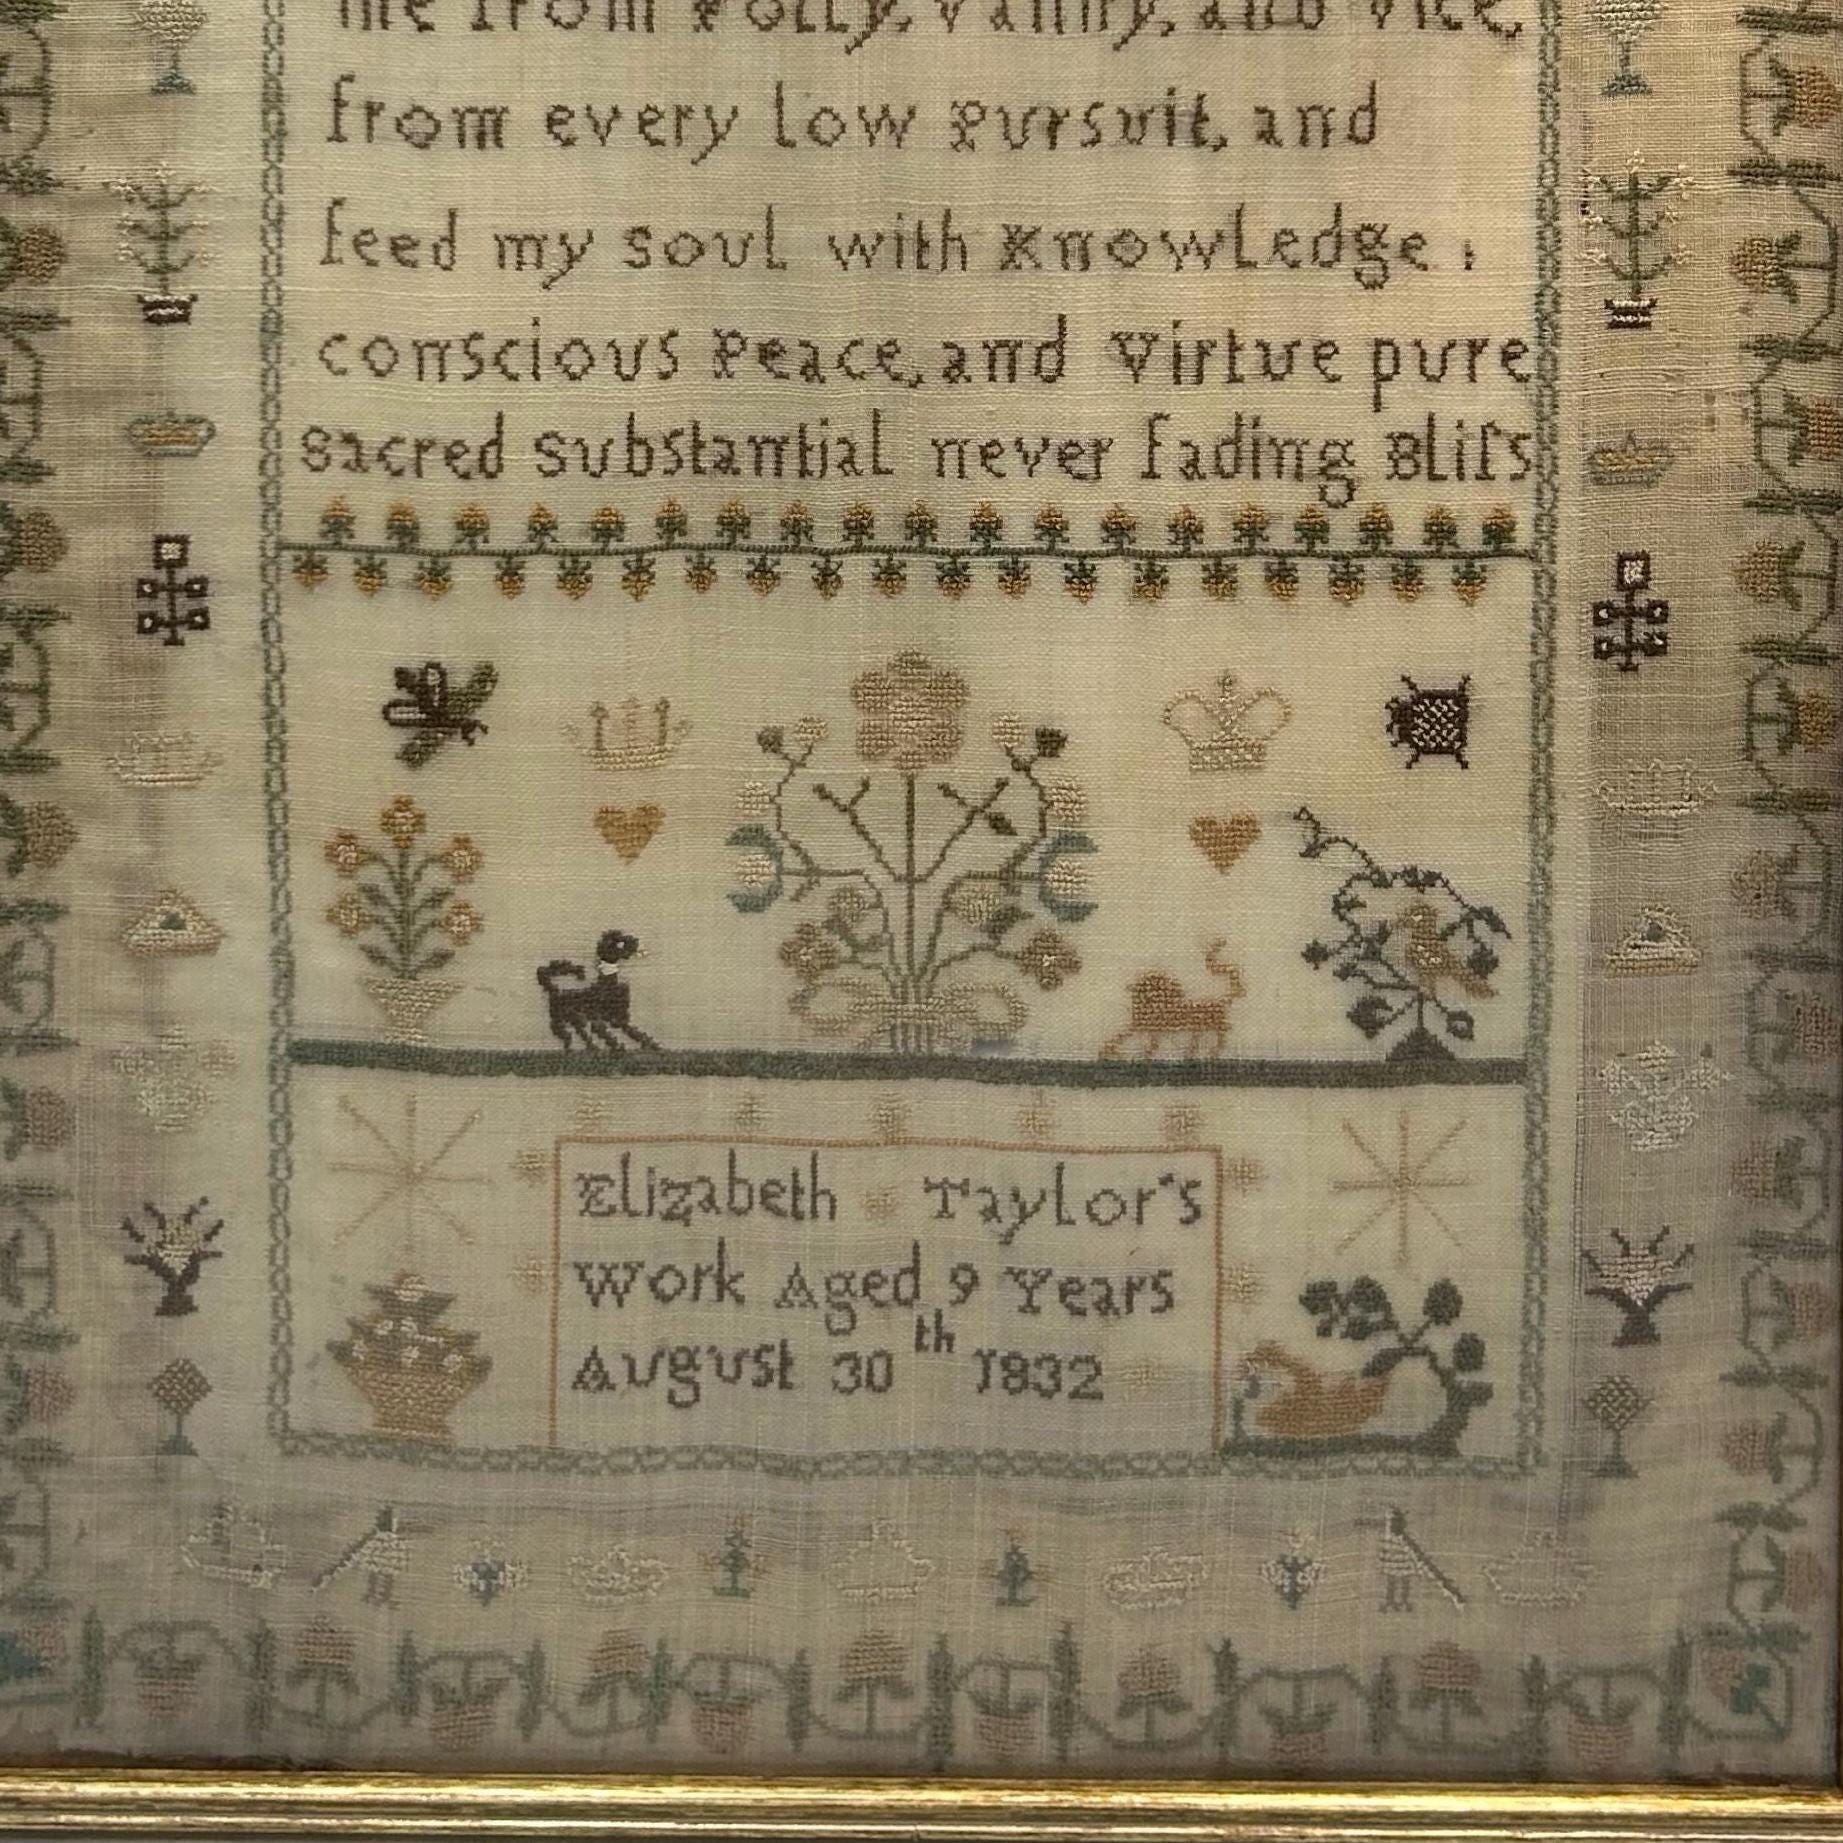 me from Folly, Vanity, and Vice,
from every low Pursuit, and
feed my soul with Knowledge,
conscious Peace, and Virtue pure
sacred substantial never fading Bliſs
Elizabeth Taylor's
Work Aged 9 Years
August 30th 1832